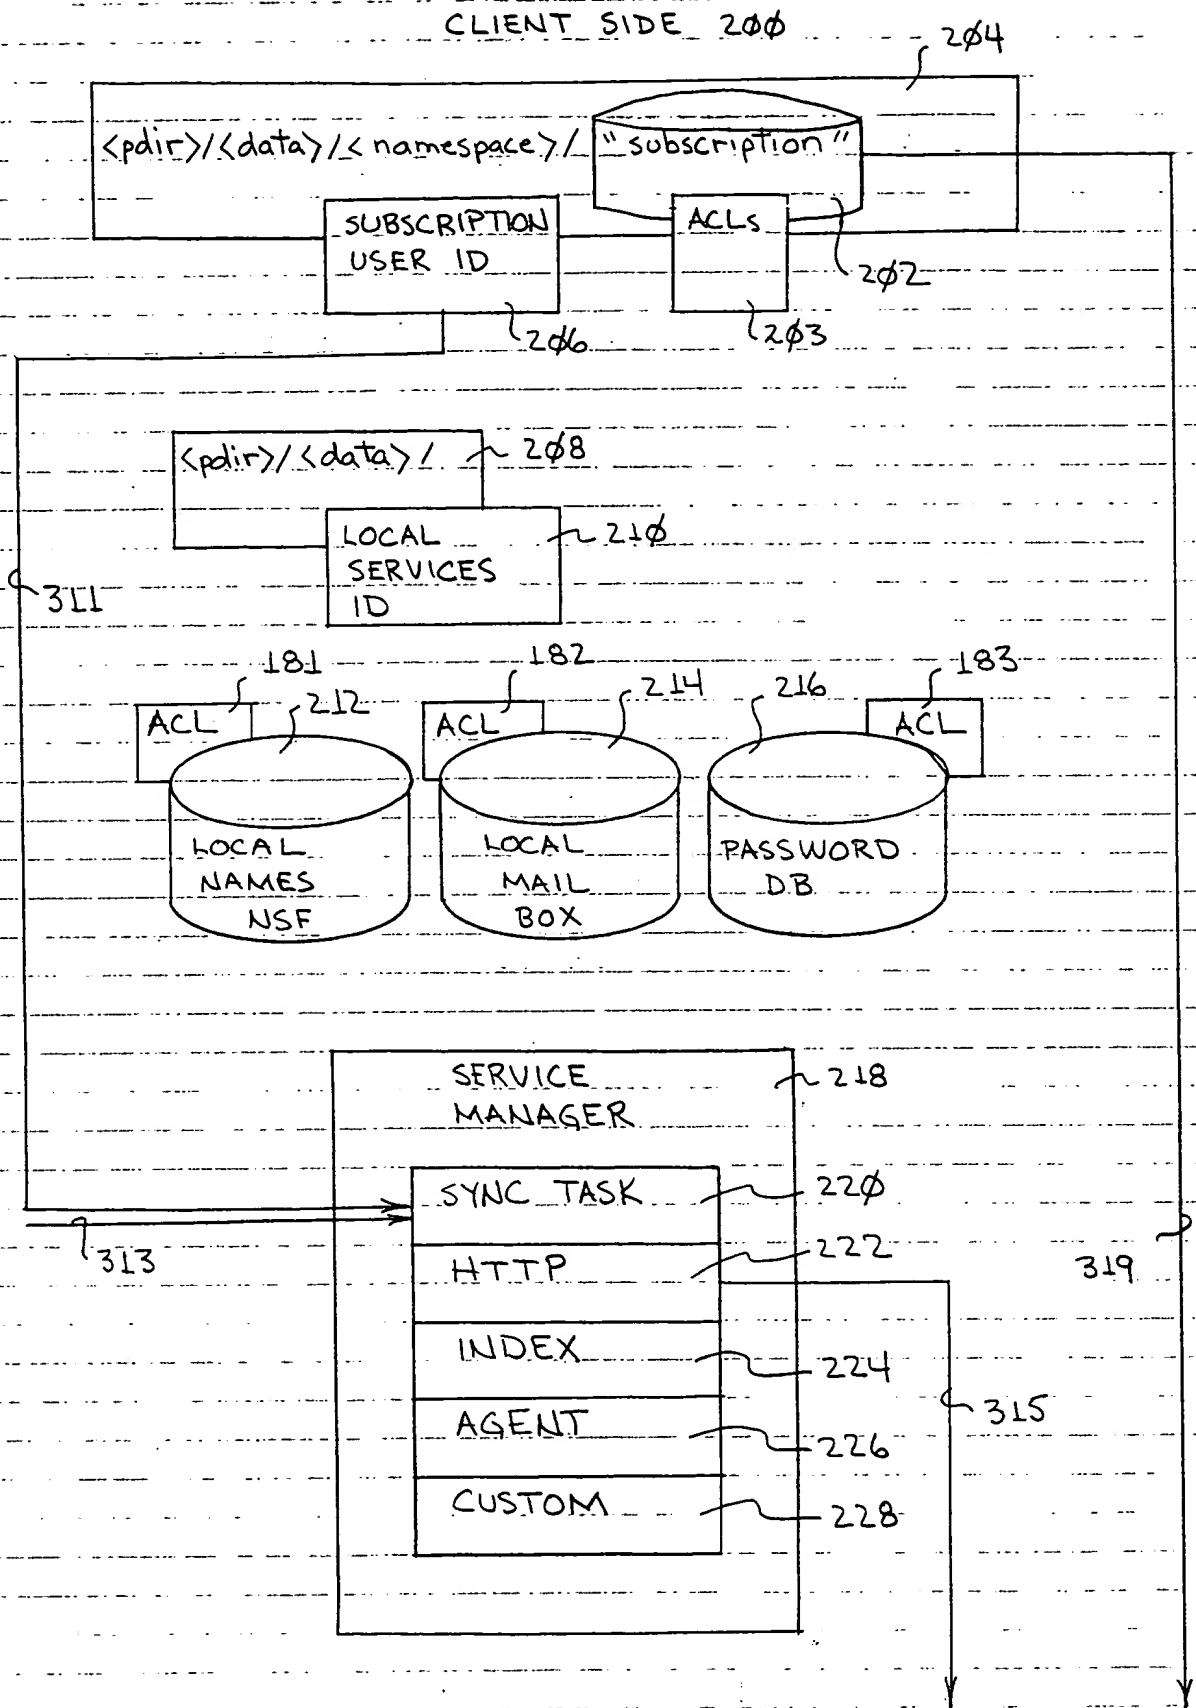 CLIENT SIDE 2φφ
2φ4
<pdir>/<data>/<namespace>/ "subscription"
SUBSCRIPTION
USER ID
ACLs
2φ2
2φ6
2φ3
<pdir>/<data>/
2φ8
LOCAL
SERVICES
ID
21φ
311
181
182
183
212
214
216
ACL
ACL
ACL
LOCAL
NAMES
NSF
LOCAL
MAIL
BOX
PASSWORD
DB
SERVICE
MANAGER
218
SYNC TASK
22φ
313
HTTP
222
319
INDEX
224
315
AGENT
226
CUSTOM
228